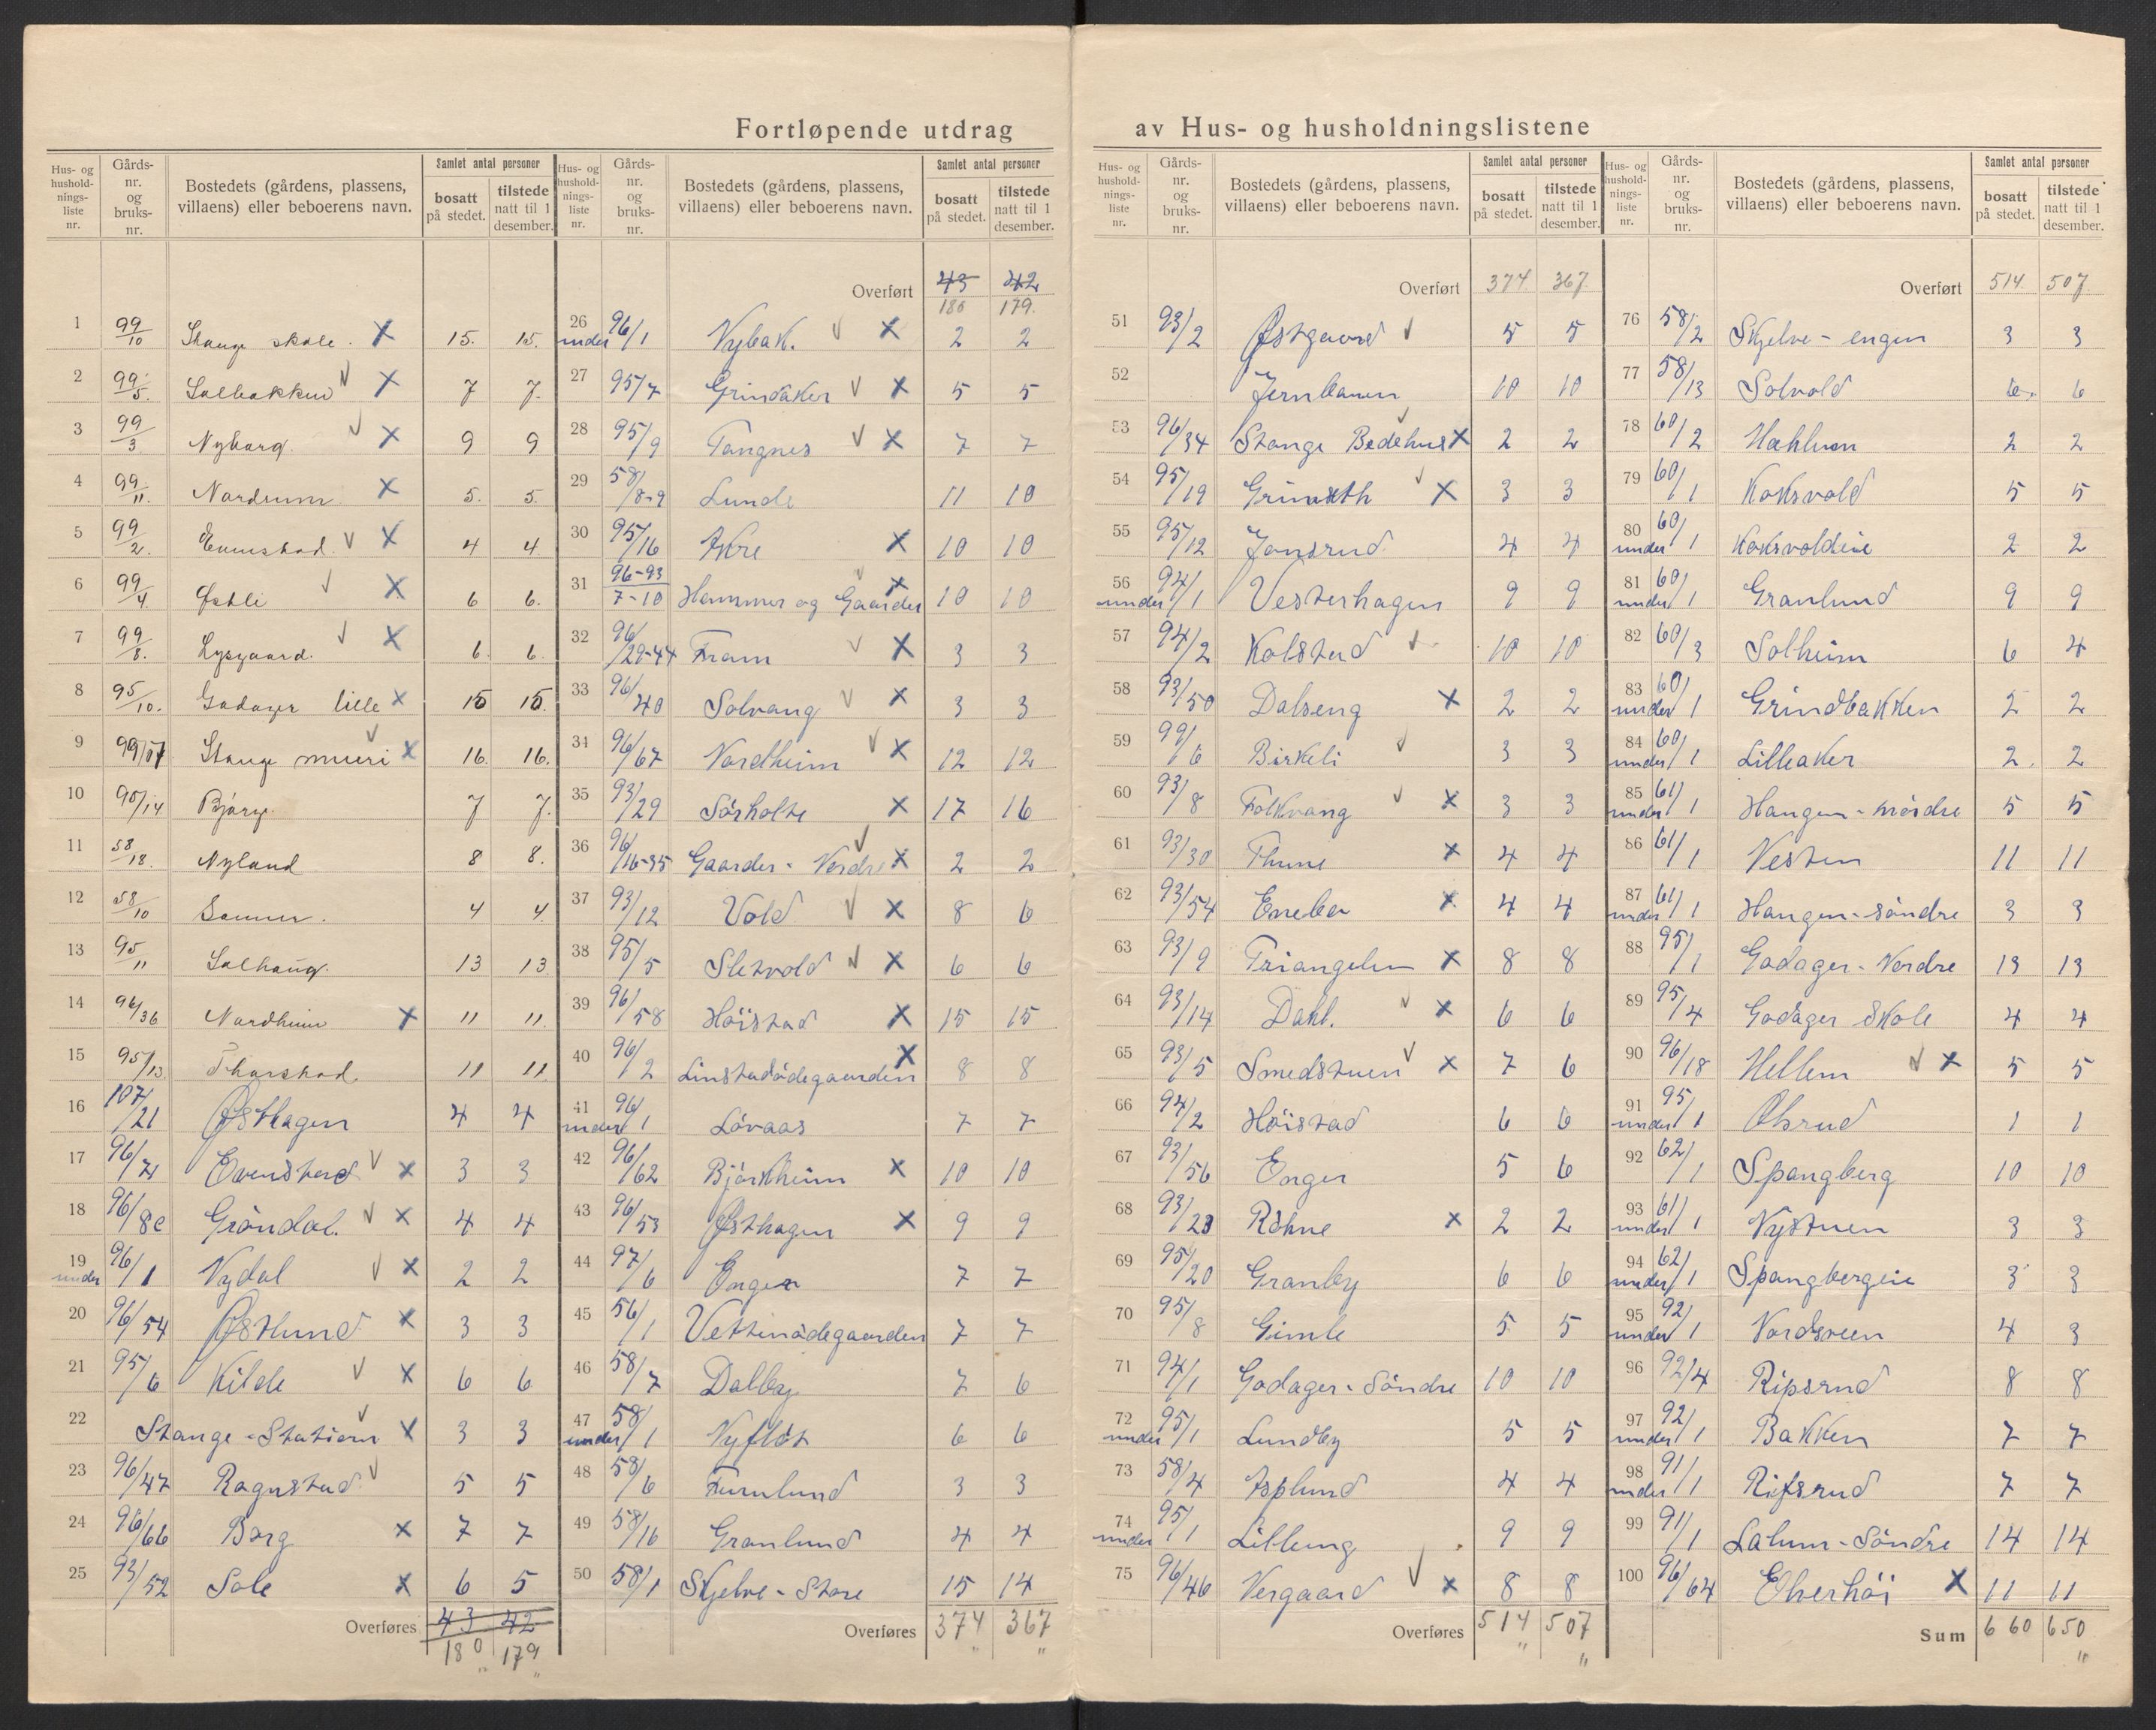 Fortløpende utdrag av Hus- og husholdningslistene
Hus- og hushold-nings-liste nr. | Gårds-nr. og bruks-nr. | Bostedets (gårdens, plassens, villaens) eller beboerens navn. | Samlet antal personer | bosatt på stedet. | tilstede natt til 1 desember.
1 99/10 Stange skole. X 15. 15.
2 99/5. Solbakken V X 7 7.
3 99/3 Nyborg. V X 9 9
4 99/11. Nordrum X 5. 5.
5 99/2. Evenstad. V X 4 4
6 99/4. Østli V X 6 6.
7 99/8. Lysgaard. V X 6. 6.
8 95/10. Godager lille X 15 15.
9 Stange mieri V X 16. 16.
10 95/14 Bjørg. 7 7.
11 58/18. Nyland 8 8.
12 58/10 4 4.
13 95/11 Solhaug. 13 13
14 96/36 Nordheim X 11 11.
15 95/13. Thorstad 11 11
16 107/21 Østhagen 4 4
17 Evenstad V X 3 3
18 96/8c Gröndal. V X 4 4
19 under 96/1 Nydal V X 2 2
20 96/54 Østlund X 3 3
21 95/6 Kilde V X 6 6
22 Stange-Station V X 3 3
23 96/47 Ragnstad V 5 5
24 96/66 Borg X 7 7
25 93/52 Sole X 6 5
Overføres 43 42
180 " 179 "
Hus- og hushold-nings-liste nr. | Gårds-nr. og bruks-nr. | Bostedets (gårdens, plassens, villaens) eller beboerens navn. | Samlet antal personer | bosatt på stedet. | tilstede natt til 1 desember.
Overført 43 42
180 179.
26 under 96/1 Nybak. V X 2 2
27 95/7 Grindaker V X 5 5
28 95/9 Tangnes V X 7 7
29 58/8-9 Lunde 11 10
30 95/16 Akre X 10 10
31 96-93/7-10 Hammer og Gaarder X 10 10
32 96/29-44 Fram V X 3 3
33 96/40 Solvang V X 3 3
34 96/67 Nordheim V X 12 12
35 93/29 Sörholte X 17 16
36 96/16-35 Gaarder-Nordre V X 2 2
37 93/12 Vold V X 8 6
38 95/5 Sletvold V X 6 6
39 96/58 Höistad X 15 15
40 96/2 Linstadödegaarden X 8 8
41 under 96/1 Lövaas 7 7
42 96/62 Björkheim X 10 10
43 96/53 Østhagen X 9 9
44 97/6 Enger 7 7
45 56/1 Vettenödegaarden 7 7
46 58/7 Dalby 7 6
47 under 58/1 Nyflöt 6 6
48 58/6 Furulund 3 3
49 58/16 Granlund 4 4
50 58/1 Skjelve-Store 15 14
Overføres 374 " 367 "
Hus- og hushold-nings-liste nr. | Gårds-nr. og bruks-nr. | Bostedets (gårdens, plassens, villaens) eller beboerens navn. | Samlet antal personer | bosatt på stedet. | tilstede natt til 1 desember.
Overført 374 367
51 93/2 Østgaard V 5 5
52 Jernbanen 10 10
53 96/34 Stange Bedehus V X 2 2
54 95/19 V X 3 3
55 95/12 Jonsrud 4 4
56 under 94/1 Vesterhagen 9 9
57 94/2 Kolstad V 10 10
58 93/50 Dalseng X 2 2
59 99/6 Birkeli V 3 3
60 93/8 Folkvang V X 3 3
61 93/30 Thune X 4 4
62 93/54 Eneboe X 4 4
63 93/9 Triangelen X 8 8
64 93/14 Dahl. V X 6 6
65 93/5 Smedstuen V X 7 6
66 94/2 Höistad 6 6
67 93/56 Enger 5 6
68 93/23 Röhne X 2 2
69 95/20 Granby 6 6
70 95/8 Gimle 5 5
71 94/1 Godager-Söndre 10 10
72 under 95/1 Lundby 5 5
73 58/4 Asplund 4 4
74 under 95/1 Lilleng 9 9
75 96/46 Vergaard V X 8 8
Overføres 514 " 507 "
Hus- og hushold-nings-liste nr. | Gårds-nr. og bruks-nr. | Bostedets (gårdens, plassens, villaens) eller beboerens navn. | Samlet antal personer | bosatt på stedet. | tilstede natt til 1 desember.
Overført 514 507
76 58/2 Skjelve-engen 3 3
77 58/13 Solvold 6. 6
78 60/2 Hæhlum 2 2
79 60/1 Koksvold 5 5
80 under 60/1 Koksvoldeie 2 2
81 under 60/1 Granlund 9 9
82 60/3 Solheim 6 4
83 under 60/1 Grindbakken 2 2
84 under 60/1 Lilleaker 2 2
85 under 61/1 Haugen-nordre 5 5
86 61/1 Vesten 11 11
87 under 61/1 Haugen-söndre 3 3
88 95/1 Godager-Nordre 13 13
89 95/4 Godager Skole 4 4
90 96/18 Hellem V X 5 5
91 under 95/1 Olsrud 1 1
92 62/1 Spangberg 10 10
93 under 61/1 Nystuen 3 3
94 under 62/1 Spangbergeie 3 3
95 under 92/1 Nordsveen 4 3
96 92/4 Ripsrud 8 8
97 under 92/1 Bakken 7 7
98 under 91/1 7 7
99 91/1 Lalum-Söndre 14 14
100 96/64 Elverhöi X 11 11
Sum 660 650 "